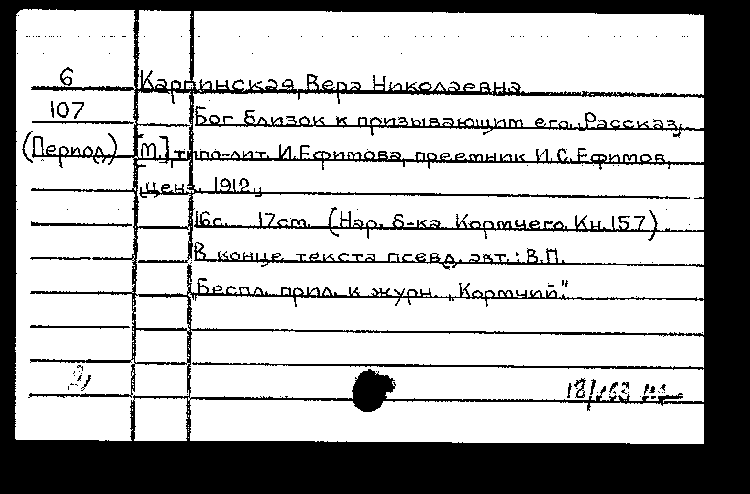 6 Карпинская, Вера Николаевна
107 Бог близок к призывающим его. Рассказ.
(Период.) [М.], типо-лит. И. Ефимова, преемник И.С. Ефимов,
[ценз. 1912].
16с. 17см. (Нар. б-ка Кормчего. Кн. 157).
В конце текста псевд. авт.: В.П.
Беспл. прил. к журн. „Кормчий".